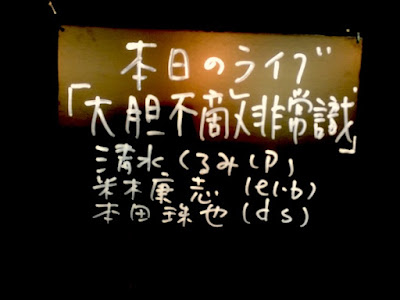 本日のライブ
「大胆不敵非常識」
清水くるみ(P)
米木康志(el.b)
本田珠也(ds)